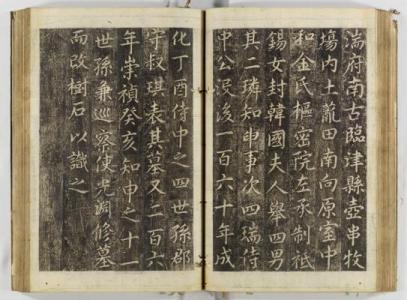 湍府南古臨津縣壺串牧
場内土龍田南向原室中
和金氏樞密院左承制祗
錫女封韓國夫人舉四男
其二璘知申事次四瑞侍
中公没後一百六十年成
化丁酉侍中之四世孫郡
守叔琪表其墓又二百六
年崇禎癸亥知申之十一
世孫兼巡察使光洞修墓
而改樹石以識之